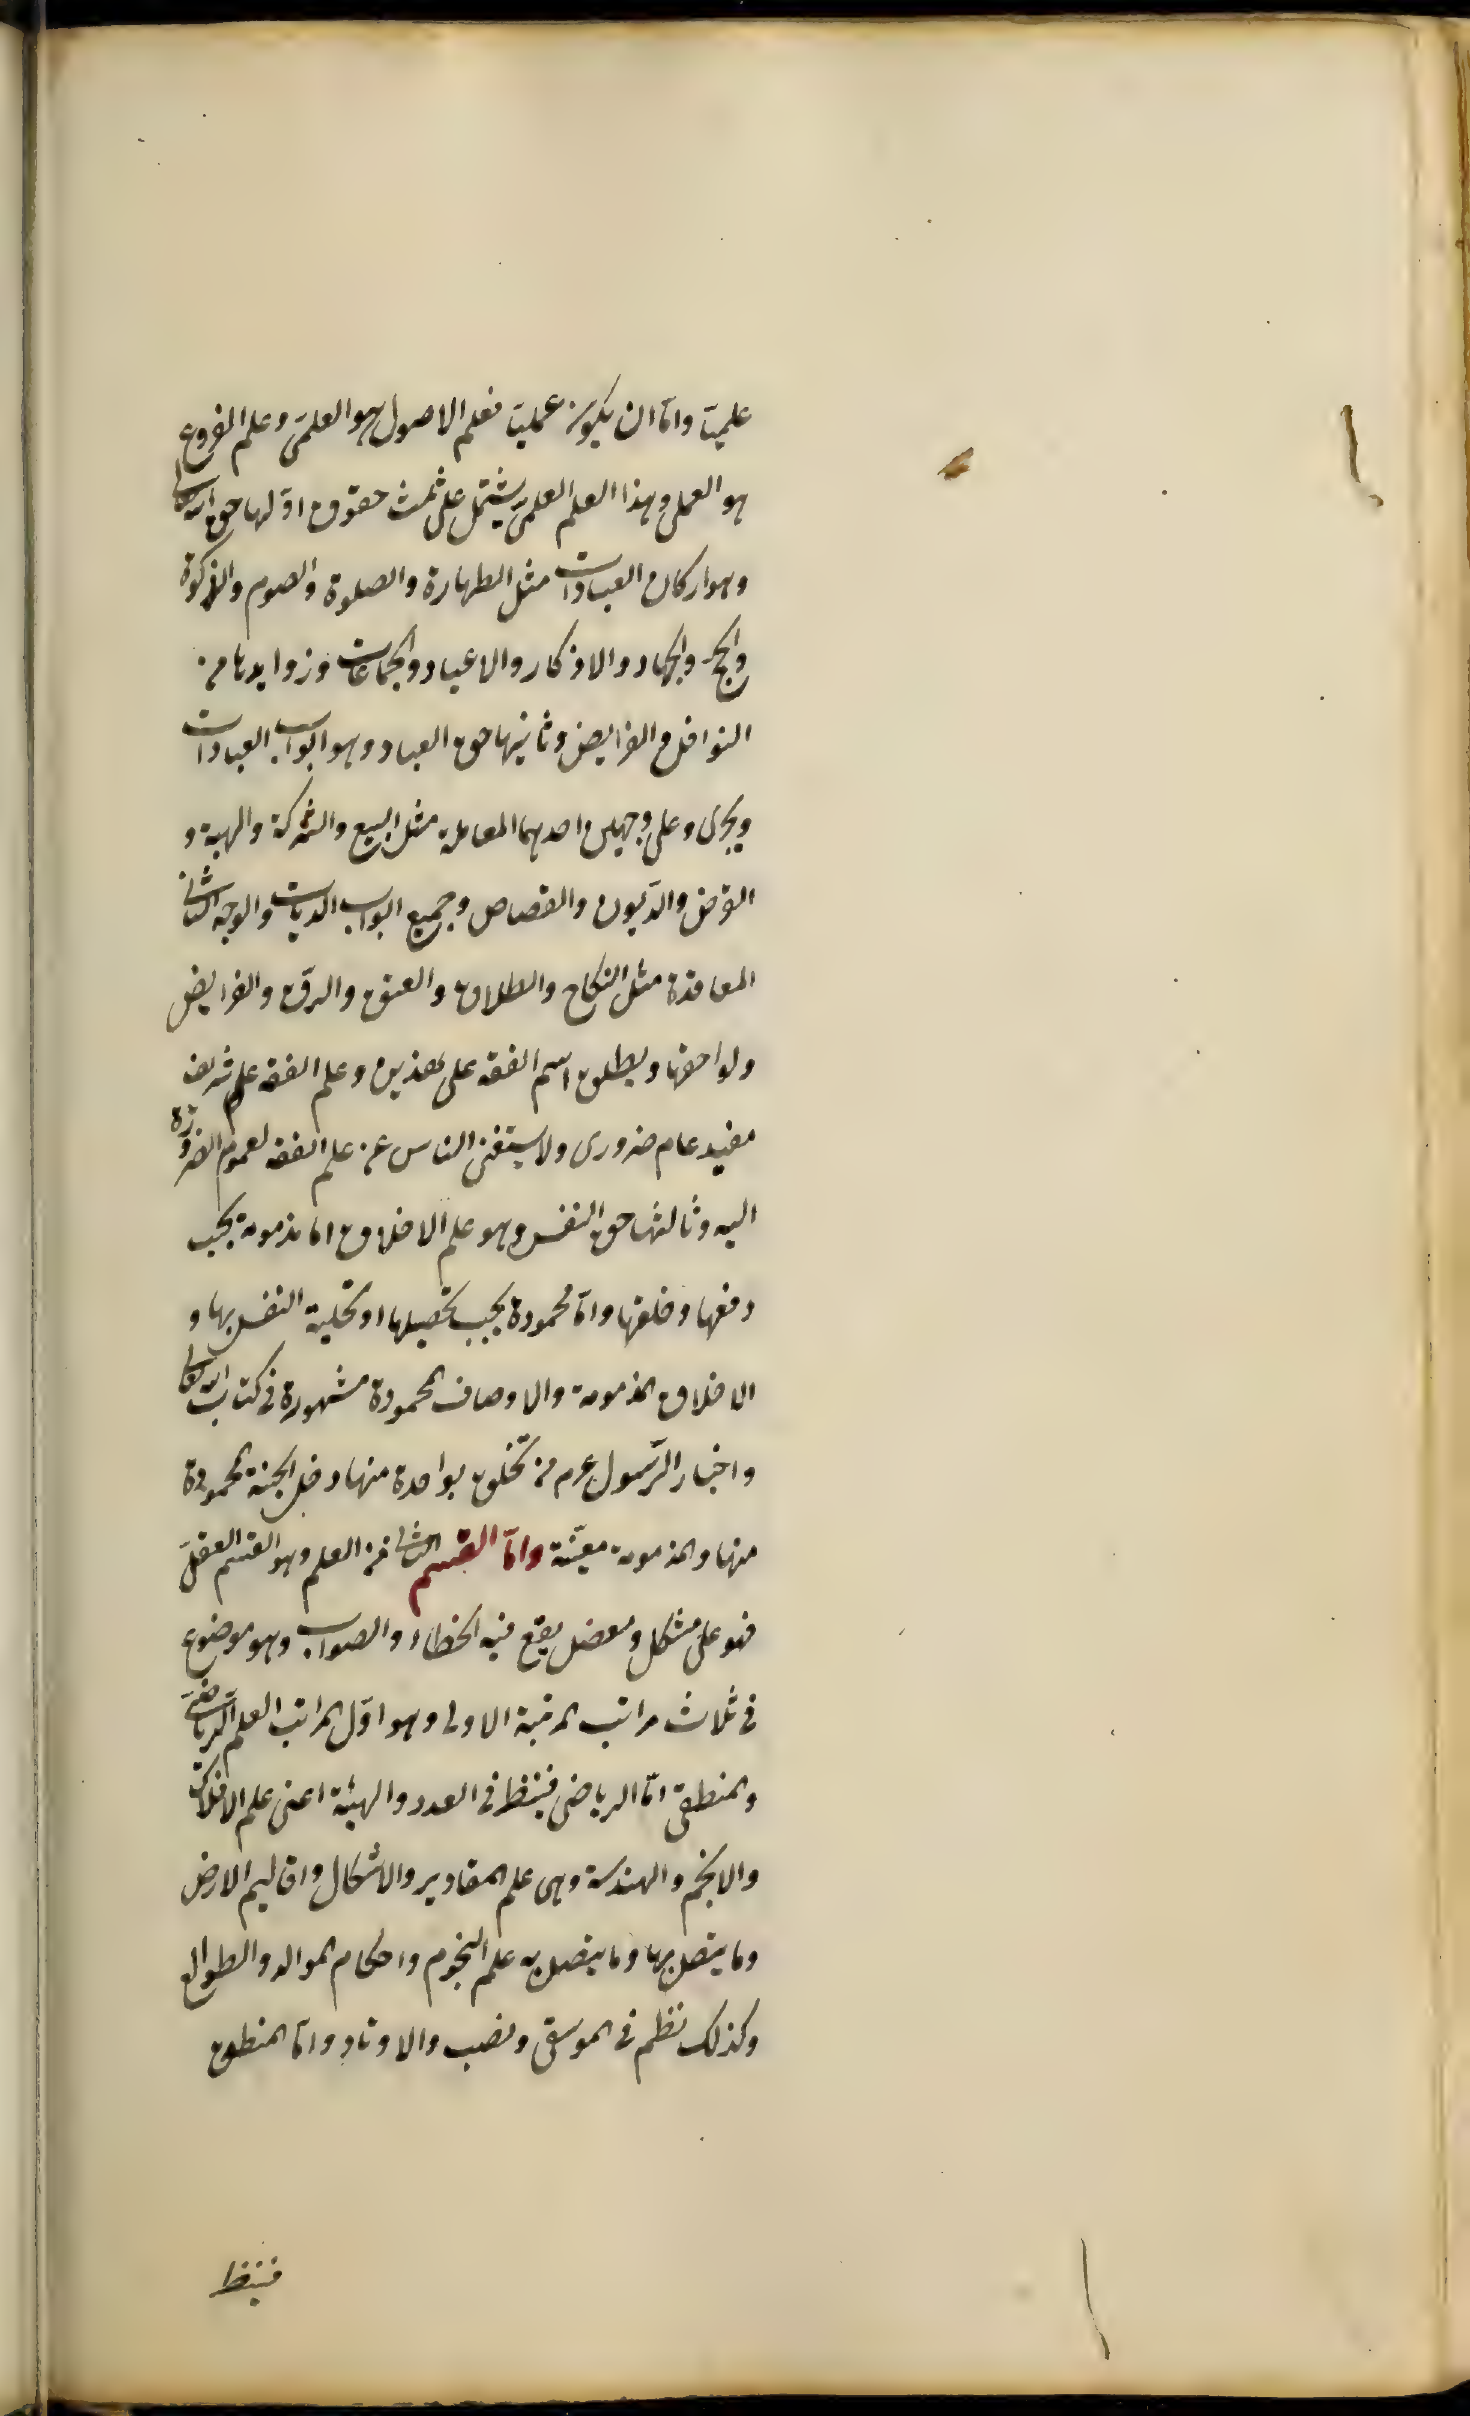 علميّا وامّا ان يكون عمليّا فعلم الاصول هو العلمىّ وعلم الفروع
هو العملى وهذا العلم العلمىّ يشتمل على ثلث حقوق اوّلها حق الله تعالى
وهو اركان العبادات مثل الطهارة والصلوة والصوم والزكوة
والحجّ والجهاد والاذكار والاعياد والجماعات وزوايدها من
النوافل والفرايض وثانيها حق العباد وهو ابواب العبادات
ويجرى وعلى وجهين احدهما المعاملة مثل البيع والشركة والهبة و
القرض والدّيون والقصاص وجميع ابواب الديات والوجه الثانى
المعاقدة مثل النكاح والطلاق والعتق والرقّ والفرايض
ولواحقها ويطلق اسم الفقه على هذين وعلم الفقه علم شريف
مفيد عام ضرورى ولا يستغنى الناس عن علم الفقه لعموم الضرورة
اليه وثالثها حق النفس وهو علم الاخلاق اما مذمومة يجب
دفعها وخلعها وامّا محمودة يجب تحصيلها او تحلية النفس بها و
الاخلاق المذمومة والاوصاف المحمودة مشهورة فى كتاب الله تعالى
واخبار الرّسول عم من تخلّق بواحدة منها دخل الجنة المحمودة
منها والمذمومة معيّنة وامّا القسم الثانى من العلم وهو القسم العقلىّ
فهو على مشكل ومعضل يقع فيه الخطاء والصواب وهو موضوع
فى ثلاث مراتب المرتبة الاولى وهو اوّل المراتب العلم الرّياضىّ
والمنطقىّ امّا الرياضى فينظر فى العدد والهيئة اعنى علم الافلاك
والانجم والهندسة وهى علم المقادير والاشكال واقاليم الارض
وما يتصل بها وما يتصل به علم النجوم واحكام الموالد والطوالع
وكذلك نظم فى الموسقى ونصب والاوتاد وامّا المنطق
فينظر